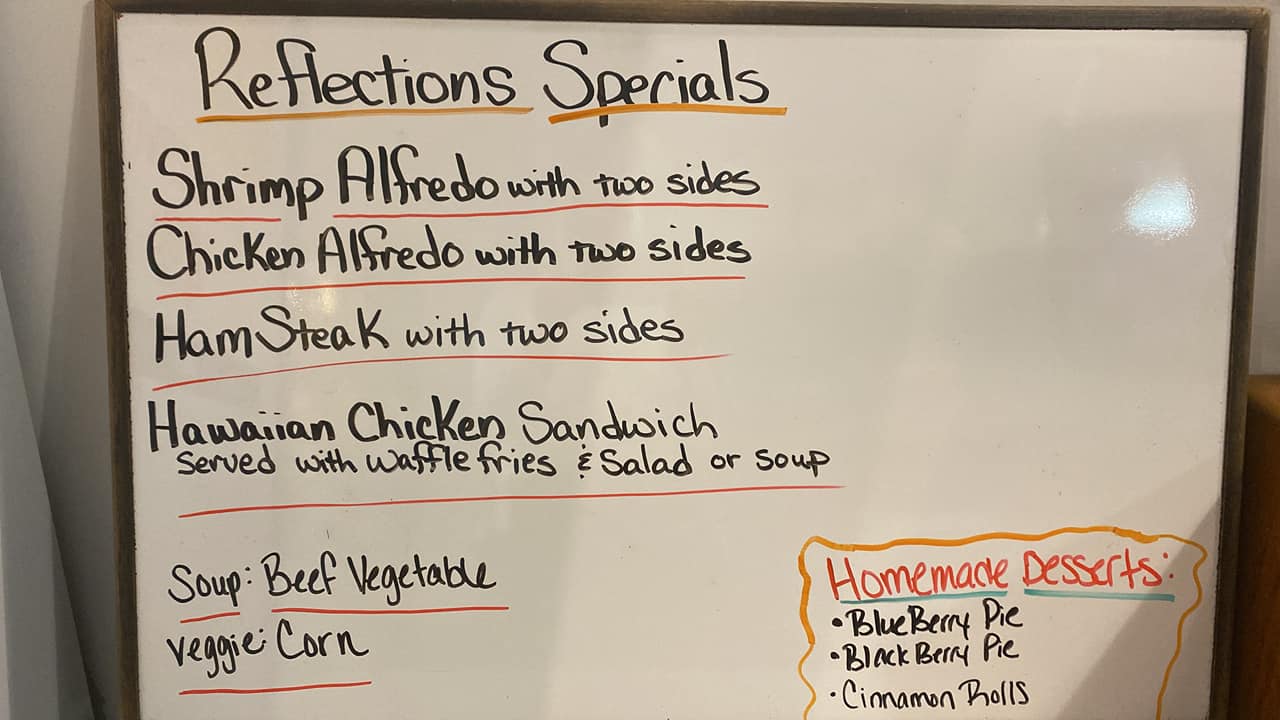 Reflections Specials
Shrimp Alfredo with two sides
Chicken Alfredo with two sides
Ham Steak with two sides
Hawaiian Chicken Sandwich
Served with waffle fries & Salad or Soup
Soup: Beef Vegetable
Veggie: Corn
Homemade Desserts:
• BlueBerry Pie
• BlackBerry Pie
• Cinnamon Rolls